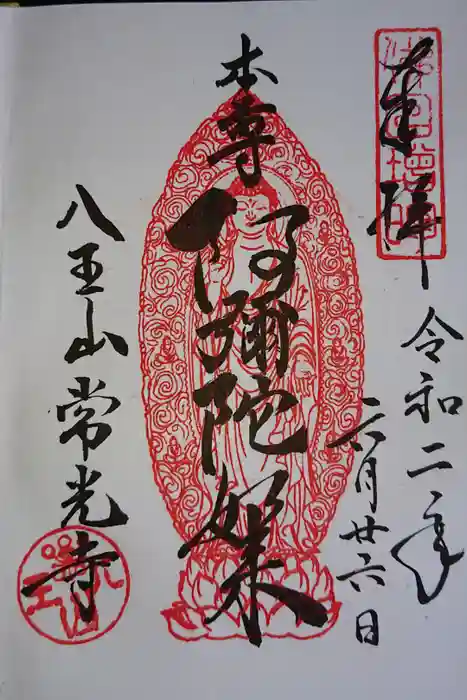 奉拝
令和二年
六月廿六日
本尊
阿彌陀如来
八王山常光寺